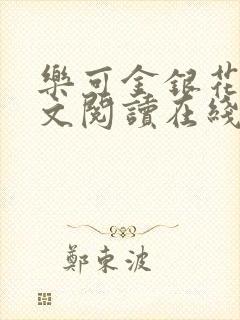 樂可金銀花
文閱讀在綫
鄭東波